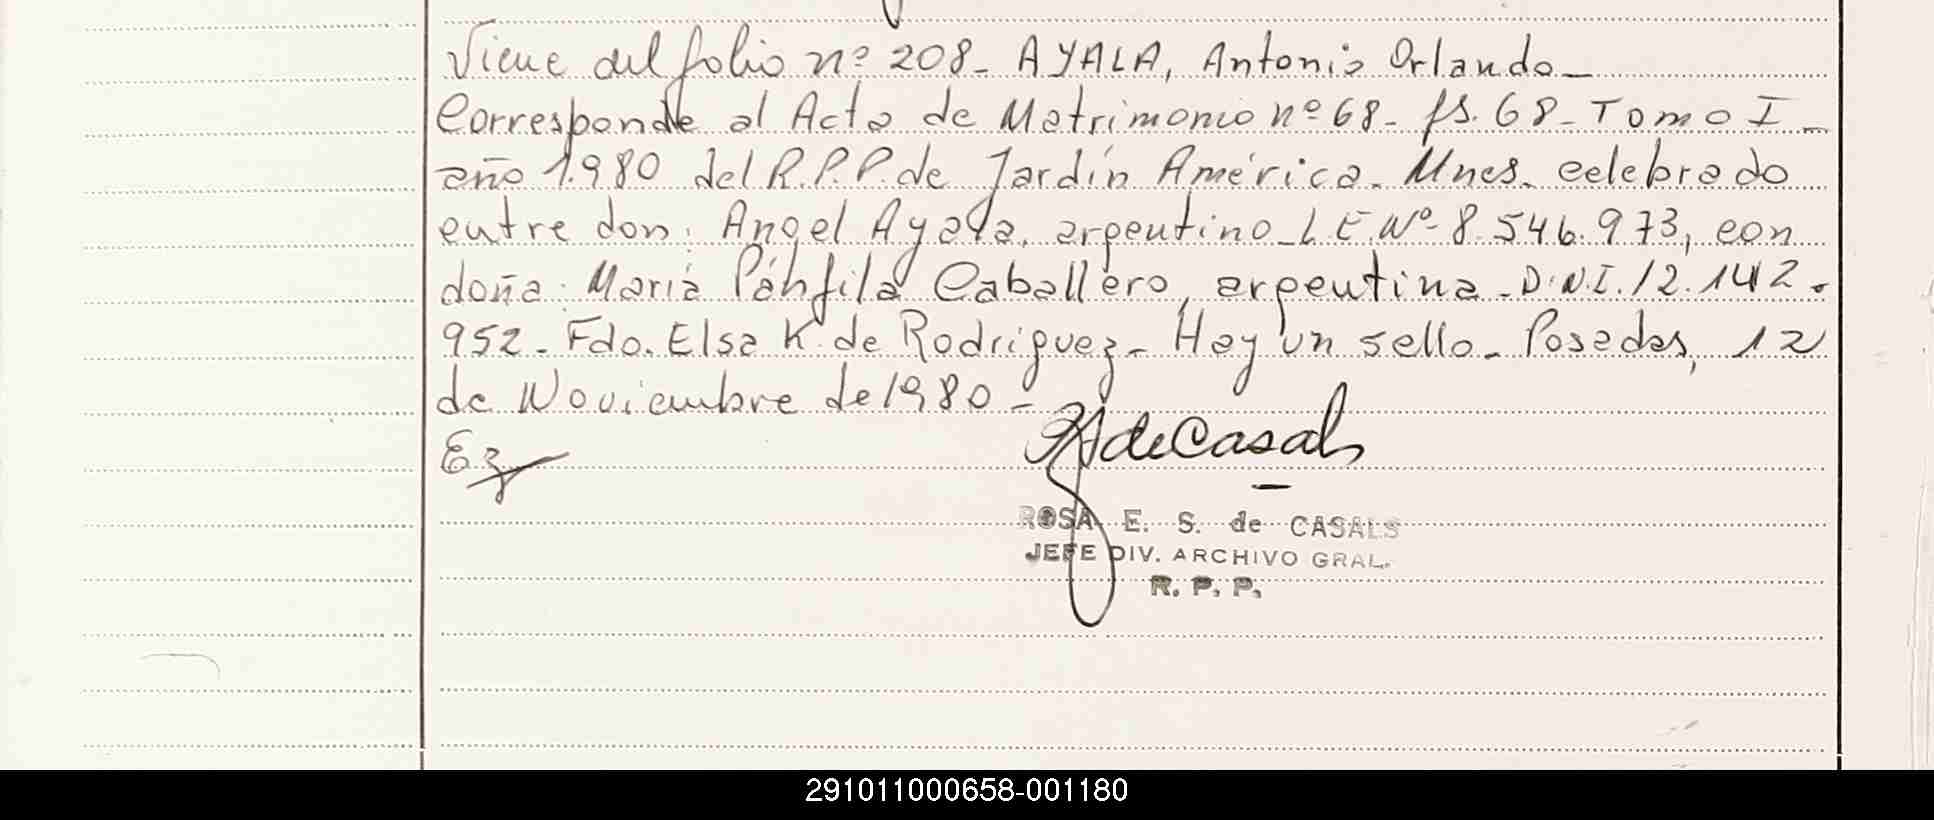 Viene del folio nº 208- AYALA, Antonio Orlando-
Corresponde al Acta de Matrimonio nº 68- fs. 68- Tomo I-
año 1.980 del R.P.P. de Jardín América. Mnes. celebrado
entre don: Angel Ayala, argentino- L.E. Nº- 8.546.973, con
doña: María Pánfila Caballero, argentina- D.N.I. 12.142.
952- Fdo. Elsa K. de Rodriguez- Hay un sello- Posadas, 12
de Noviembre de 1980-
Ez
deCasals
ROSA E. S. de CASALS
JEFE DIV. ARCHIVO GRAL.
R. P. P.
291011000658-001180